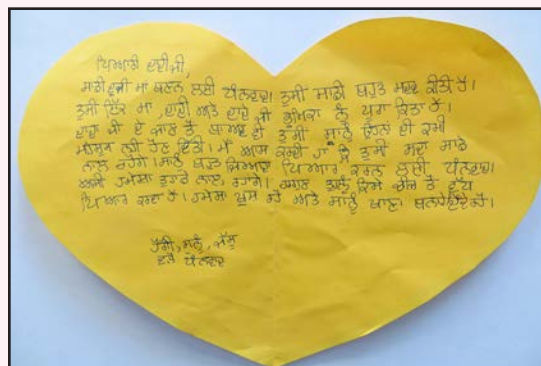 ਪਿਆਰੀ ਦਾਦੀ ਜੀ,
ਸਾਡੀ ਦੂਜੀ ਮਾਂ ਬਣਨ ਲਈ ਧੰਨਵਾਦ। ਤੁਸੀਂ ਸਾਡੀ ਬਹੁਤ ਮਦਦ ਕੀਤੀ ਹੈ।
ਤੁਸੀਂ ਇੱਕ ਮਾਂ, ਦਾਦੀ ਅਤੇ ਦਾਦੇ ਦੀ ਭੂਮਿਕਾ ਨੂੰ ਪੂਰਾ ਕਿਤਾ ਹੈ।
ਦਾਦਾ ਜੀ ਦੇ ਜਾਣ ਤੋਂ ਬਾਅਦ ਵੀ ਤੁਸੀਂ ਸਾਨੂੰ ਕਮੀ
ਮਹਿਸੂਸ ਨਹੀਂ ਹੋਣ ਦਿੱਤੀ। ਮੈਂ ਆਸ ਕਰਦੀ ਹਾਂ ਕਿ ਤੁਸੀਂ ਸਦਾ ਸਾਡੇ
ਨਾਲ ਰਹੋਗੇ। ਸਾਨੂੰ ਬਹੁਤ ਜ਼ਿਆਦਾ ਪਿਆਰ ਕਰਨ ਲਈ ਧੰਨਵਾਦ।
ਅਸੀਂ ਹਮੇਸ਼ਾ ਤੁਹਾਡੇ ਨਾਲ ਰਹਾਂਗੇ। ਤੁਹਾਨੂੰ ਕਿਸੇ ਚੀਜ਼ ਤੋਂ ਵੱਧ
ਪਿਆਰ ਕਰਦਾ ਹੈ। ਹਮੇਸ਼ਾ ਖੁਸ਼ ਰਹੋ ਅਤੇ ਸਾਨੂੰ ਖਾਣਾ
ਵਲੋਂ ਧੰਨਵਾਦ